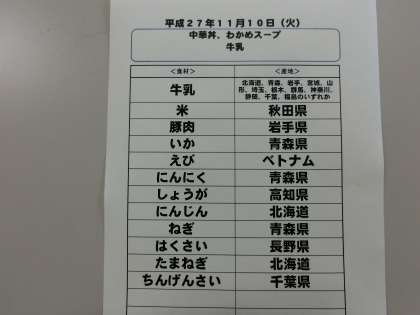 平成27年11月10日（火）
中華丼、わかめスープ
牛乳
＜食材＞ ＜産地＞
牛乳 北海道、青森、岩手、宮城、山形、埼玉、栃木、群馬、神奈川、静岡、千葉、福島のいずれか
米 秋田県
豚肉 岩手県
いか 青森県
えび ベトナム
にんにく 青森県
しょうが 高知県
にんじん 北海道
ねぎ 青森県
はくさい 長野県
たまねぎ 北海道
ちんげんさい 千葉県